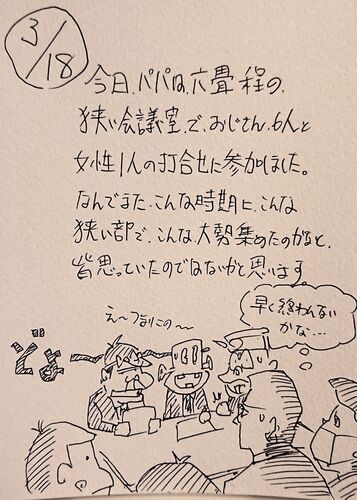 3/18
今日、パパは、六畳程の、
狭い会議室で、おじさん、6人と
女性1人の打合せに参加しました。
なんでまた、こんな時期に、こんな
狭い部で、こんな、大勢集めたのかなと、
皆思っていたのではないかと思います。
早く終わんない
かな…
え〜つまりこの〜
どよ〜